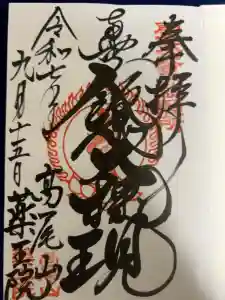 奉拝
飯縄大権現
高尾山
薬王院
令和七年
九月十五日